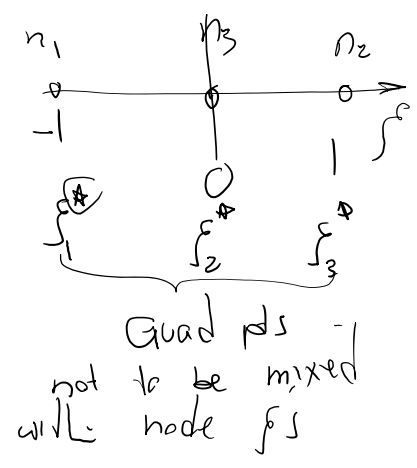 n₁ n₃ n₂
-1 0 1 ξ
ξ₁* ξ₂* ξ₃*
Quad pts
not to be mixed
with node ps